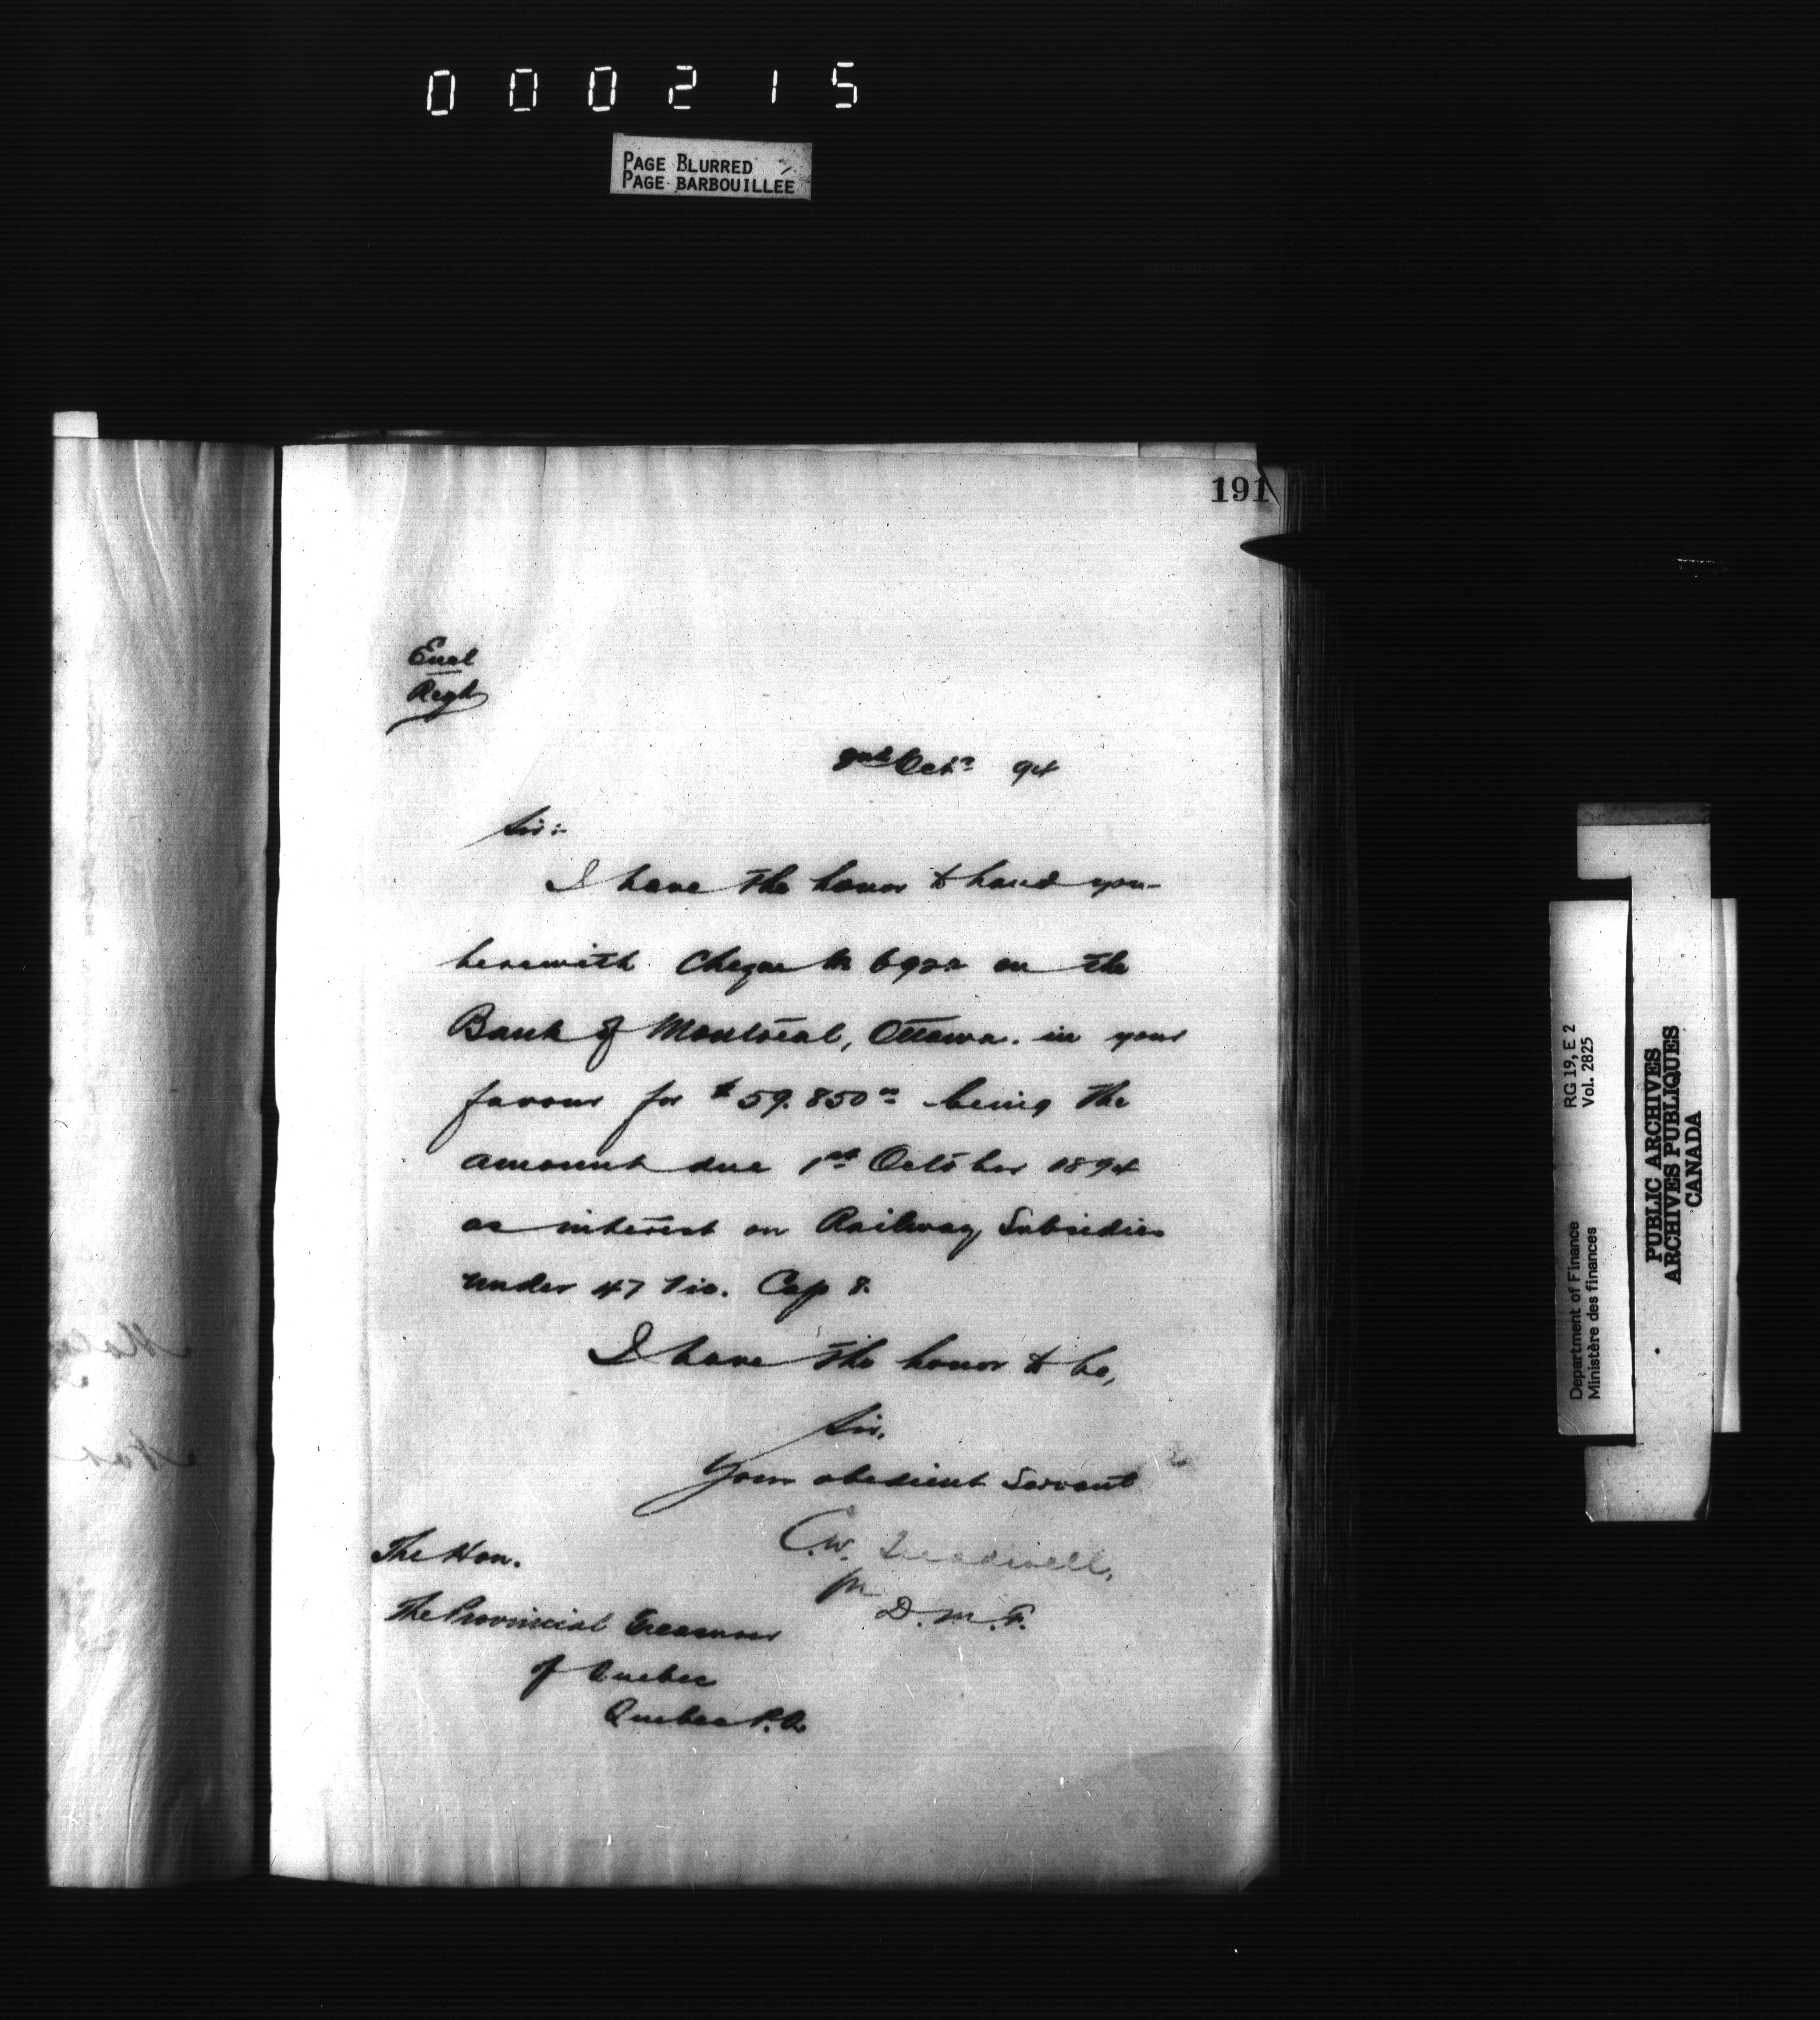 000215
PAGE BLURRED
PAGE BARBOUILLEE
191
Encl
Regd
2nd Octr 94
Sir:-
I have the honor to hand you
herewith Cheque No 6922 on the
Bank of Montreal, Ottawa. in your
favour for $59.850 00 being the
amount due 1st October 1894
as interest on Railway Subsidies
under 47 Vic. Cap 8.
I have the honor to be,
Sir,
Your obedient Servant
C.W. Treadwell,
for D.M.F.
The Hon.
The Provincial Treasurer
of Quebec
Quebec P.Q.
Department of Finance RG 19, E 2
Ministère des finances Vol. 2825
PUBLIC ARCHIVES
ARCHIVES PUBLIQUES
CANADA